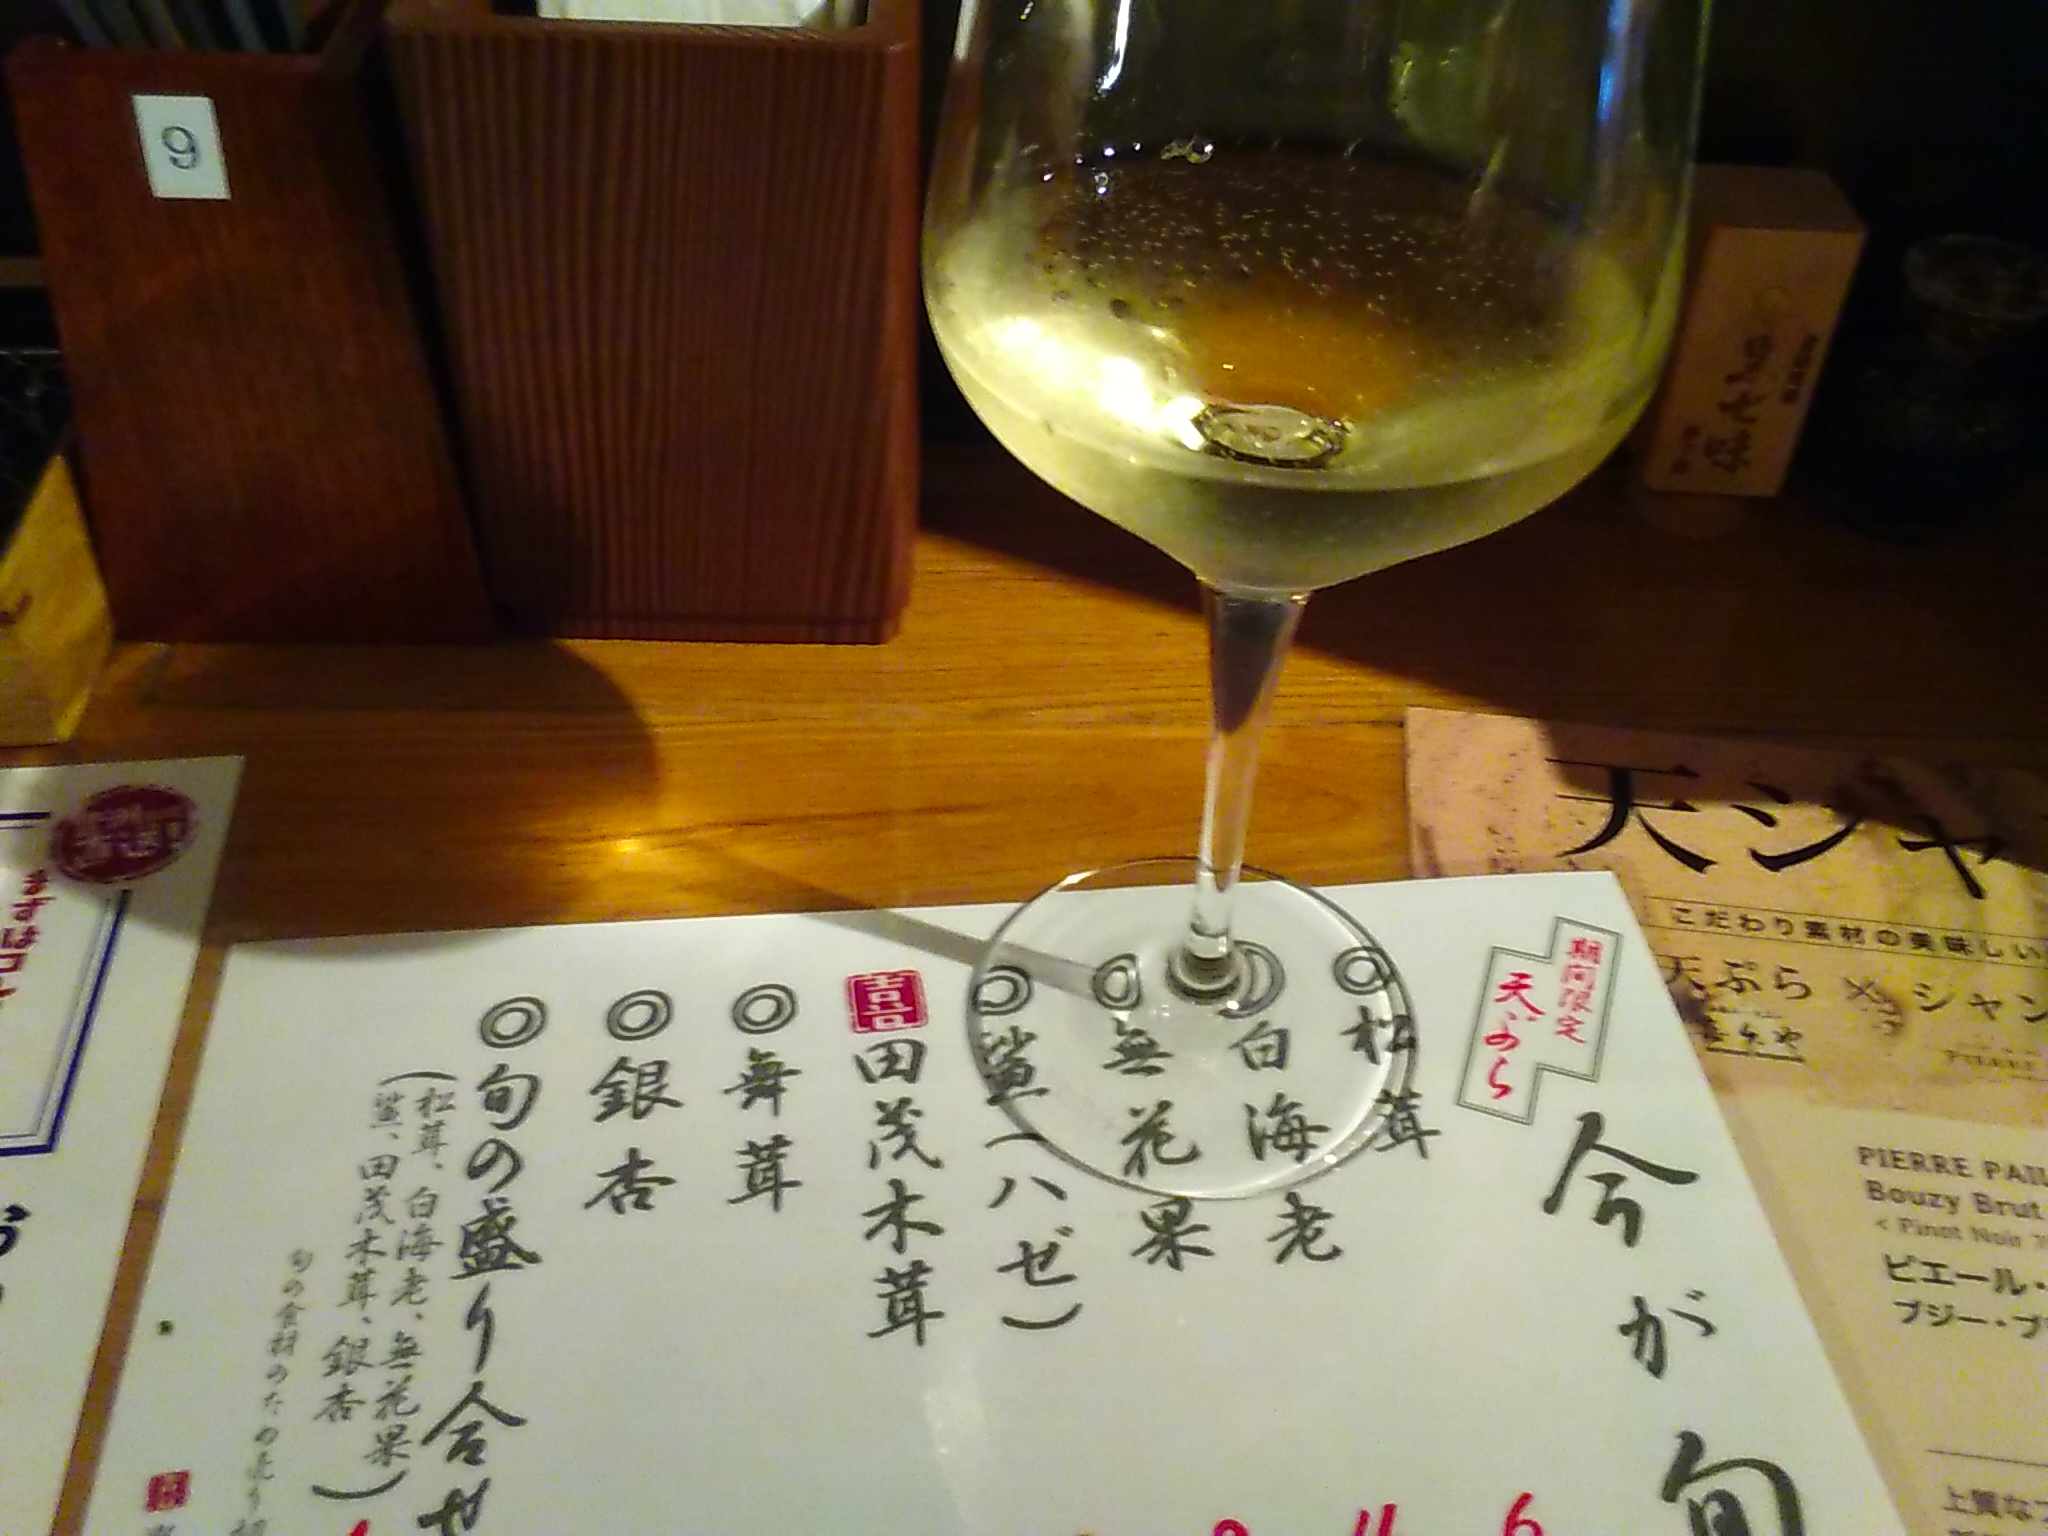 9
期間限定
天ぷら
今が旬
◎松茸
◎白海老
◎無花果
◎鯊(ハゼ)
田茂木茸
◎舞茸
◎銀杏
◎旬の盛り合せ
(松茸、白海老、無花果
鯊、田茂木茸、銀杏)
旬の食材のため売り切
天シャ
こだわり素材の美味しい
天ぷら × シャン
PIERRE PAIL
Bouzy Brut
< Pinot Noir 7
ピエール・
ブジー・ブ
上質な